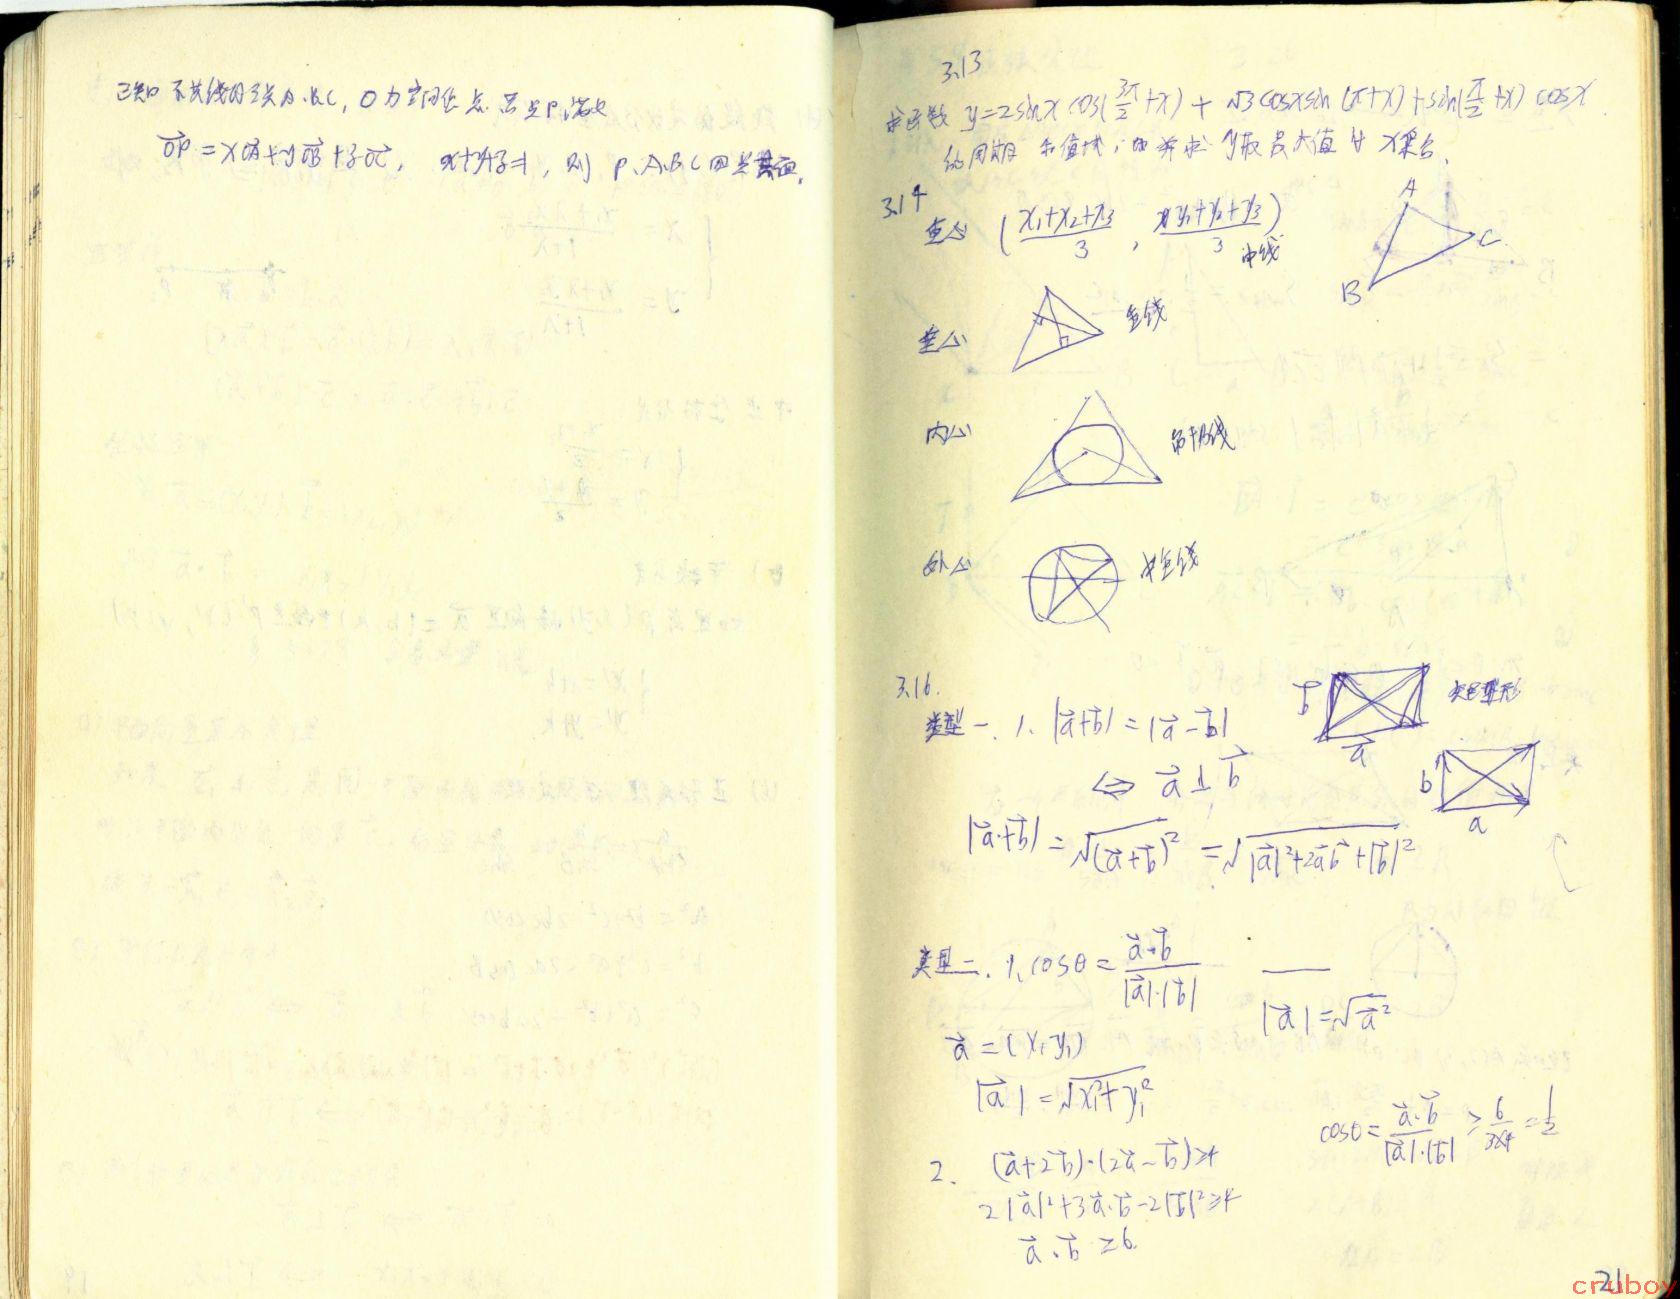 已知不共线的三点A.B.C, O为空间任一点 若点P满足
OP⃗ = xOA⃗ + yOB⃗ + zOC⃗, x+y+z=1, 则 P.A.B.C四点共面.
3.13
求函数 y=2sinx cos(3π/2+x) + √3 cosx sin(π+x)+sin(π/2+x) cosx
的周期和值域; 并求y取最大值时x集合.
3.14
重心 ( (x₁+x₂+x₃)/3 , (y₁+y₂+y₃)/3 ) 中线
A
B
C
垂心 垂线
内心 角平分线
外心 中垂线
3.16.
类型一. 1. |a⃗+b⃗| = |a⃗-b⃗|
b⃗ a⃗ 矩形
⇔ a⃗⊥b⃗
b a
|a⃗+b⃗| = √(a⃗+b⃗)² = √|a⃗|²+2a⃗b⃗+|b⃗|²
类型二. 1. cosθ = a⃗·b⃗/|a⃗|·|b⃗|
|a⃗|=√a⃗²
a⃗ = (x₁, y₁)
|a⃗| = √x₁²+y₁²
cosθ = a⃗·b⃗/|a⃗|·|b⃗| ≥ 6/3×4 = 1/2
2. (a⃗+2b⃗)·(2a⃗-b⃗)≥4
2|a⃗|²+3a⃗·b⃗-2|b⃗|²≥4
a⃗·b⃗ ≥6
21
cruboy